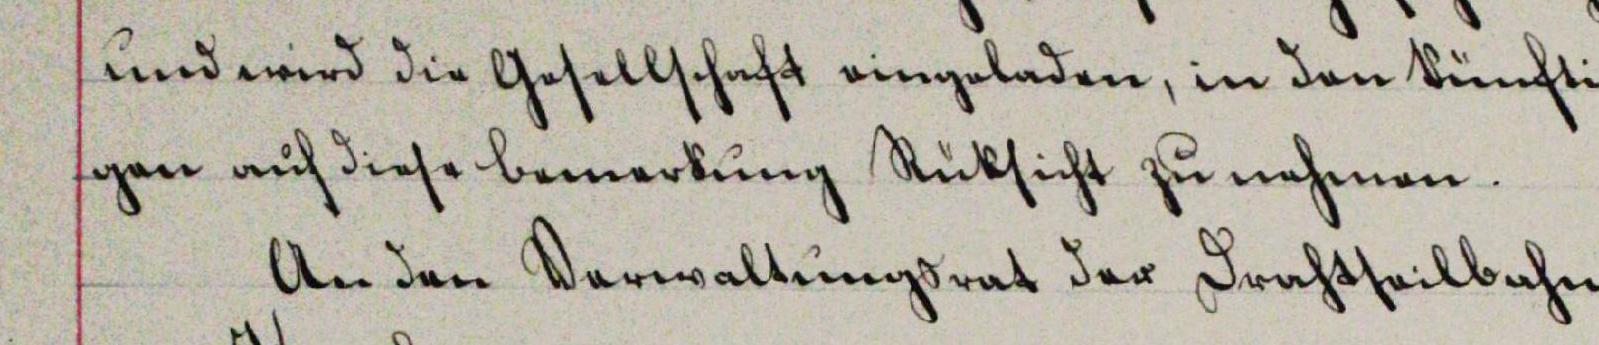 und wird die Gesellschaft eingeladen, in den künfti
gen auf diese Bemerkung Rüksicht zu nehmen.
An den Verwaltungsrat der Drahtseilbahn